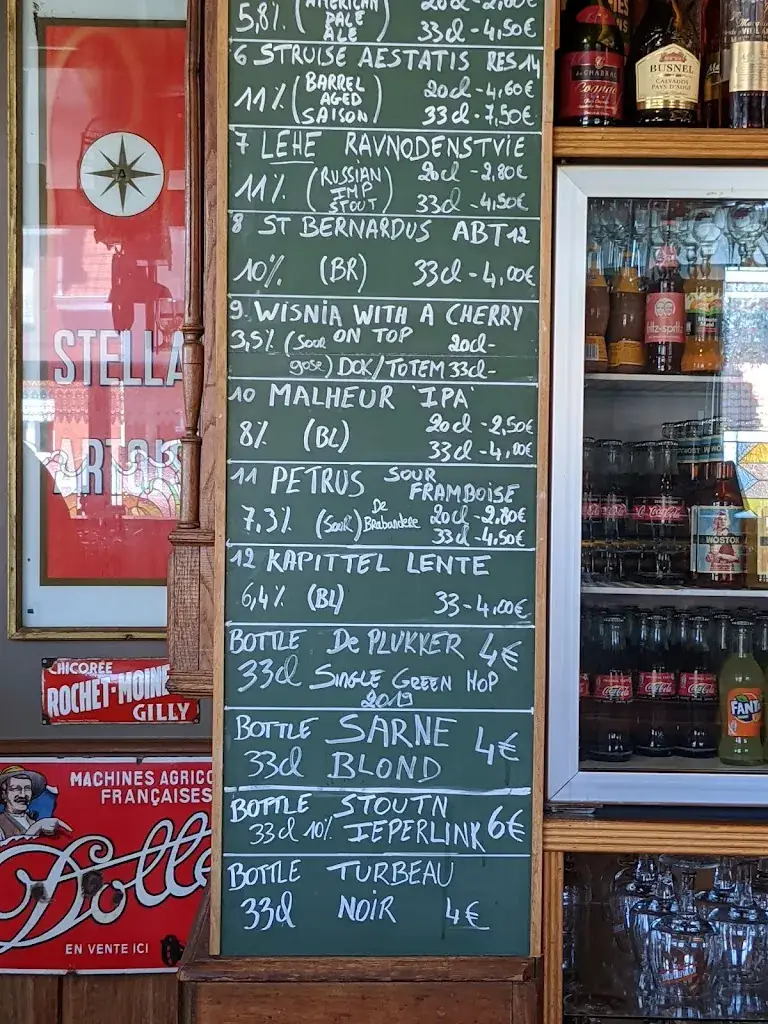 5,8% (AMERICAN PALE ALE) 20cl-2,60€
33cl-4,50€
6 STRUISE AESTATIS RES14
11% (BARREL AGED SAISON) 20cl-4,60€
33cl-7,50€
7 LEHE RAVNODENSTVIE
11% (RUSSIAN IMP STOUT) 20cl-2,80€
33cl-4,50€
8 ST BERNARDUS ABT12
10% (BR) 33cl-4,00€
9 WISNIA WITH A CHERRY
3,5% (SOUR ON TOP 20cl-
gose) DOK/TOTEM 33cl-
10 MALHEUR 'IPA'
8% (BL) 20cl-2,50€
33cl-4,00€
11 PETRUS SOUR
FRAMBOISE
7,3% (SOUR) De Brabandere 20cl-2,80€
33cl-4,50€
12 KAPITTEL LENTE
6,4% (BL) 33-4,00€
BOTTLE De PLUKKER 4€
33cl SINGLE GREEN HOP
2019
BOTTLE SARNE 4€
33cl BLOND
BOTTLE STOUTN 6€
33cl 10% IEPERLINK
BOTTLE TURBEAU
33cl NOIR 4€
STELLA
ARTOIS
CHICORÉE
ROCHET-MOINE
GILLY
MACHINES AGRICO
FRANÇAISES
Dolle
EN VENTE ICI
Cognac
BUSNEL
CALVADOS
PAYS D'AUGE
fritz-spritz
Coca-Cola
WOSTOK
Coca-Cola
Coca-Cola
Coca-Cola
FANTA